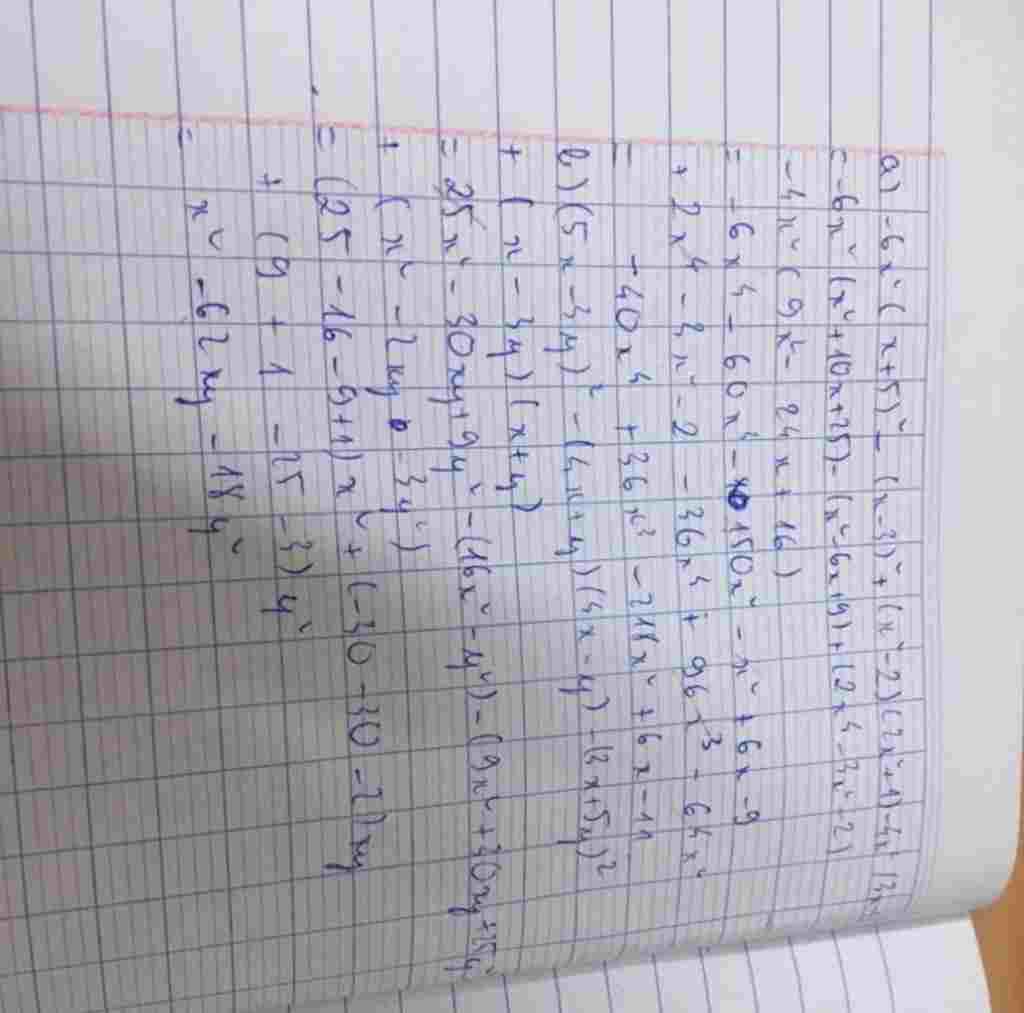 a) -6x² (x+5)² - (x-3)² + (x²-2)(2x²+1) - 4x² (3x
= -6x² (x²+10x+25) - (x²-6x+9) + (2x⁴-3x²-2)
-4x² (9x² - 24x + 16)
= -6x⁴ - 60x³ - 150x² - x² + 6x - 9
+ 2x⁴ - 3x² - 2 - 36x⁴ + 96x³ - 64x²
= -40x⁴ + 36x³ - 218x² + 6x - 11
b) (5x-3y)² - (4x+y)(4x-y) - (3x+5y)²
+ (x-3y)(x+y)
= 25x² - 30xy + 9y² - (16x² - y²) - (9x² + 30xy + 25y²
+ (x² - 2xy - 3y²)
= (25 - 16 - 9 + 1)x² + (-30 - 30 - 2)xy
+ (9 + 1 - 25 - 3) y²
= x² - 62xy - 18y²